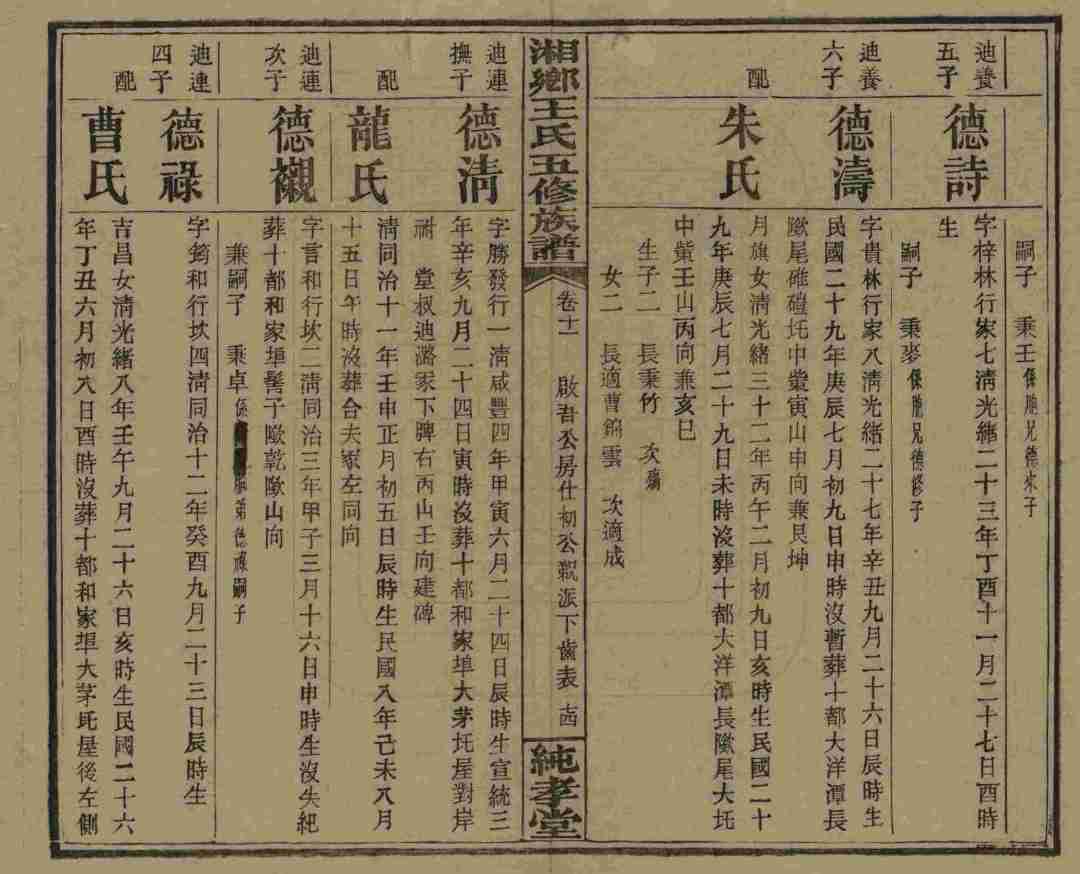 嗣子 秉壬係胞兄德來子
迪養五子
德詩
字梓林行家七清光緒二十三年丁酉十一月二十七日酉時
生
嗣子 秉麥係胞兄德修子
迪養六子
德濤
字貴林行家八清光緒二十七年辛丑九月二十六日辰時生
民國二十九年庚辰七月初九日申時沒暫葬十都大洋潭長
塅尾碓磑坵中塋寅山申向兼艮坤
配
朱氏
月旗女清光緒三十二年丙午二月初九日亥時生民國二十
九年庚辰七月二十九日未時沒葬十都大洋潭長塅尾大坵
中塋壬山丙向兼亥巳
生子二 長秉竹 次殤
女二 長適曹錦雲 次適成
湘鄉王氏五修族譜
卷十一 啟吾公房仕初公親派下齒表
純孝堂
迪連撫子
德清
字勝發行一清咸豐四年甲寅六月二十四日辰時生宣統三
年辛亥九月二十四日寅時沒葬十都和家埠大茅坵屋對岸
祔 堂叔迪潞冢下脾右丙山壬向建碑
配
龍氏
清同治十一年壬申正月初五日辰時生民國八年己未八月
十五日午時沒葬合夫冢左同向
迪連次子
德襯
字言和行坎二清同治三年甲子三月十六日申時生沒失紀
葬十都和家埠髻子塅乾塅山向
兼嗣子 秉卓係胞弟德祿嗣子
迪連四子
德祿
字筠和行坎四清同治十二年癸酉九月二十三日辰時生
配
曹氏
吉昌女清光緒八年壬午九月二十六日亥時生民國二十六
年丁丑六月初八日酉時沒葬十都和家埠大茅坵屋後左側